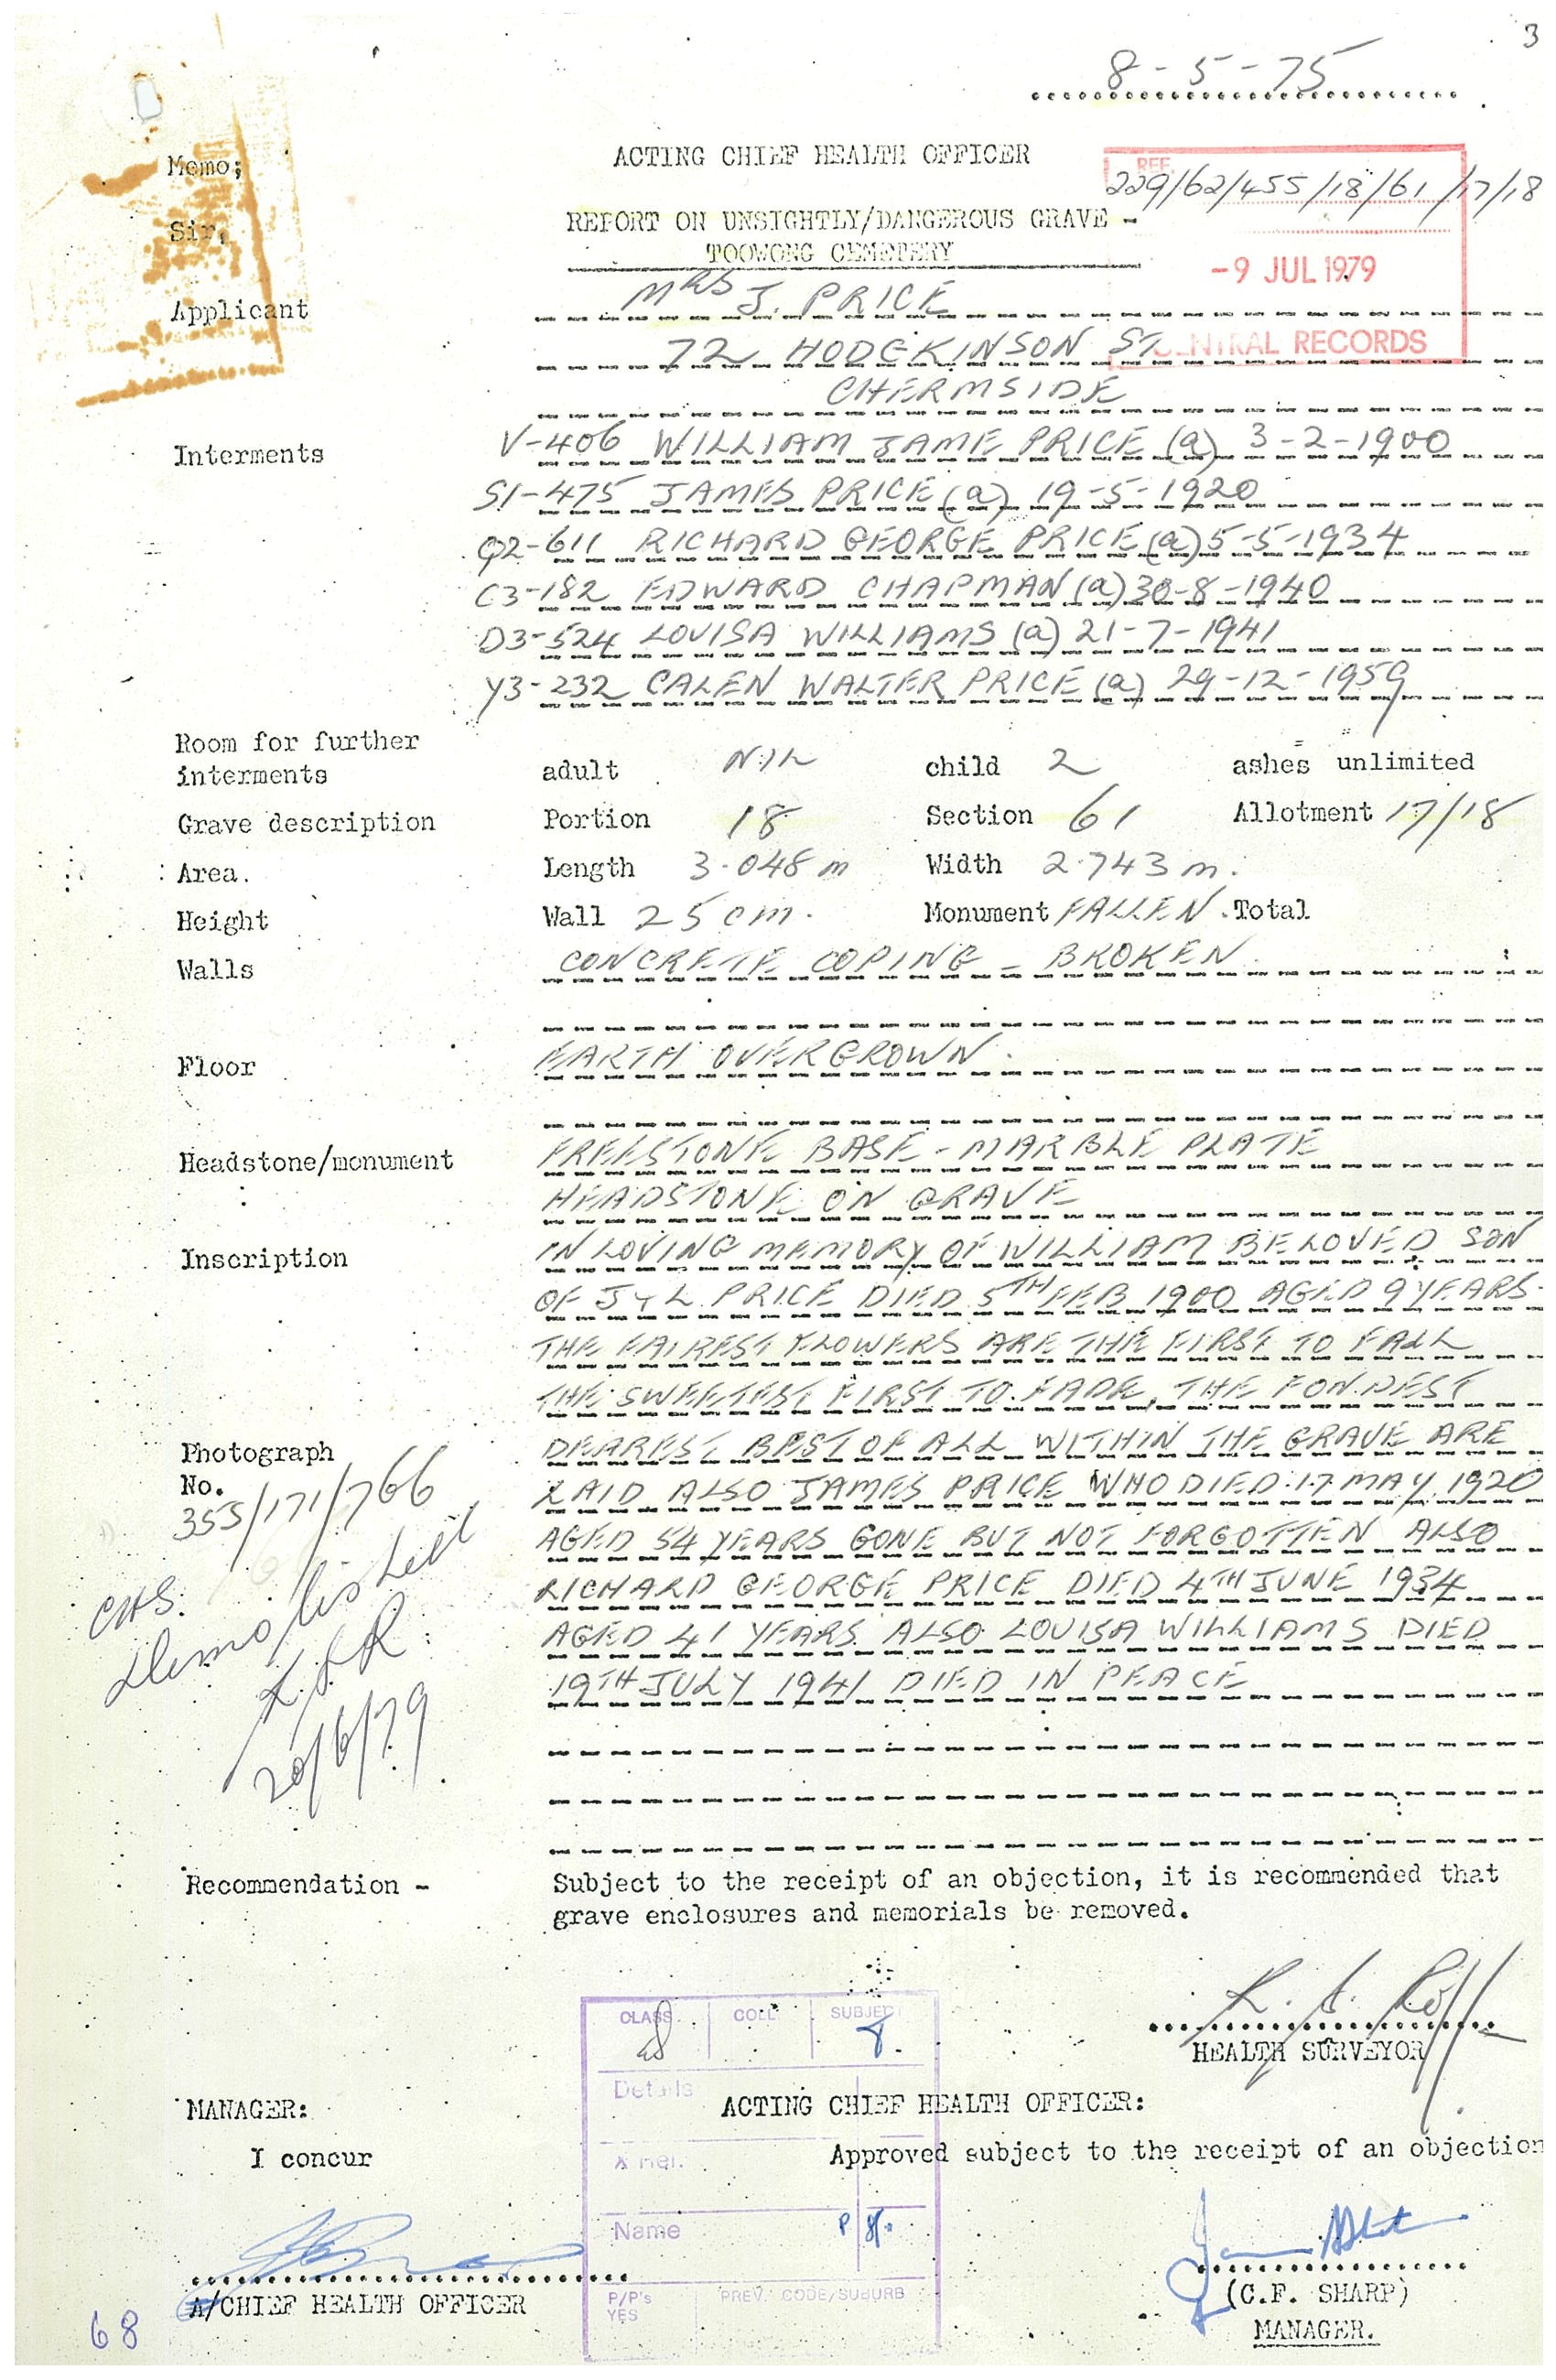 3
8-5-75
Memo;
ACTING CHIEF HEALTH OFFICER
REF.
229/62/455/18/61/17/18
Sir,
REPORT ON UNSIGHTLY/DANGEROUS GRAVE -
TOOWONG CEMETERY
-9 JUL 1979
CENTRAL RECORDS
Applicant MRS J. PRICE
72 HODGKINSON ST
CHERMSIDE
Interments V-406 WILLIAM JAME PRICE (a) 3-2-1900
S1-475 JAMES PRICE (a) 19-5-1920
Q2-611 RICHARD GEORGE PRICE (a) 5-5-1934
C3-182 EDWARD CHAPMAN (a) 30-8-1940
D3-524 LOUISA WILLIAMS (a) 21-7-1941
Y3-232 CALEN WALTER PRICE (a) 29-12-1959
Room for further
interments adult NIL child 2 ashes unlimited
Grave description Portion 18 Section 61 Allotment 17/18
Area. Length 3.048 m Width 2.743 m.
Height Wall 25 cm. Monument FALLEN. Total
Walls CONCRETE COPING - BROKEN.
Floor EARTH OVERGROWN.
Headstone/monument FREESTONE BASE - MARBLE PLATE
HEADSTONE ON GRAVE
Inscription IN LOVING MEMORY OF WILLIAM BELOVED SON
OF J & L PRICE DIED 5TH FEB 1900 AGED 9 YEARS.
THE FAIREST FLOWERS ARE THE FIRST TO FALL
THE SWEETEST FIRST TO FADE, THE FONDEST
Photograph DEAREST BEST OF ALL WITHIN THE GRAVE ARE
No. LAID ALSO JAMES PRICE WHO DIED 17 MAY 1920
355/171/766
AGED 54 YEARS GONE BUT NOT FORGOTTEN ALSO
RICHARD GEORGE PRICE DIED 4TH JUNE 1934
AGED 41 YEARS ALSO LOUISA WILLIAMS DIED
19TH JULY 1941 DIED IN PEACE
CHS.
Demolished
20/6/79
Recommendation - Subject to the receipt of an objection, it is recommended that
grave enclosures and memorials be removed.
CLASS COLL SUBJECT
HEALTH SURVEYOR
Details
MANAGER: ACTING CHIEF HEALTH OFFICER:
I concur Approved subject to the receipt of an objection
X Ref.
Name
A/CHIEF HEALTH OFFICER
P/P's PREV. CODE/SUBURB
YES
(C.F. SHARP)
MANAGER.
68